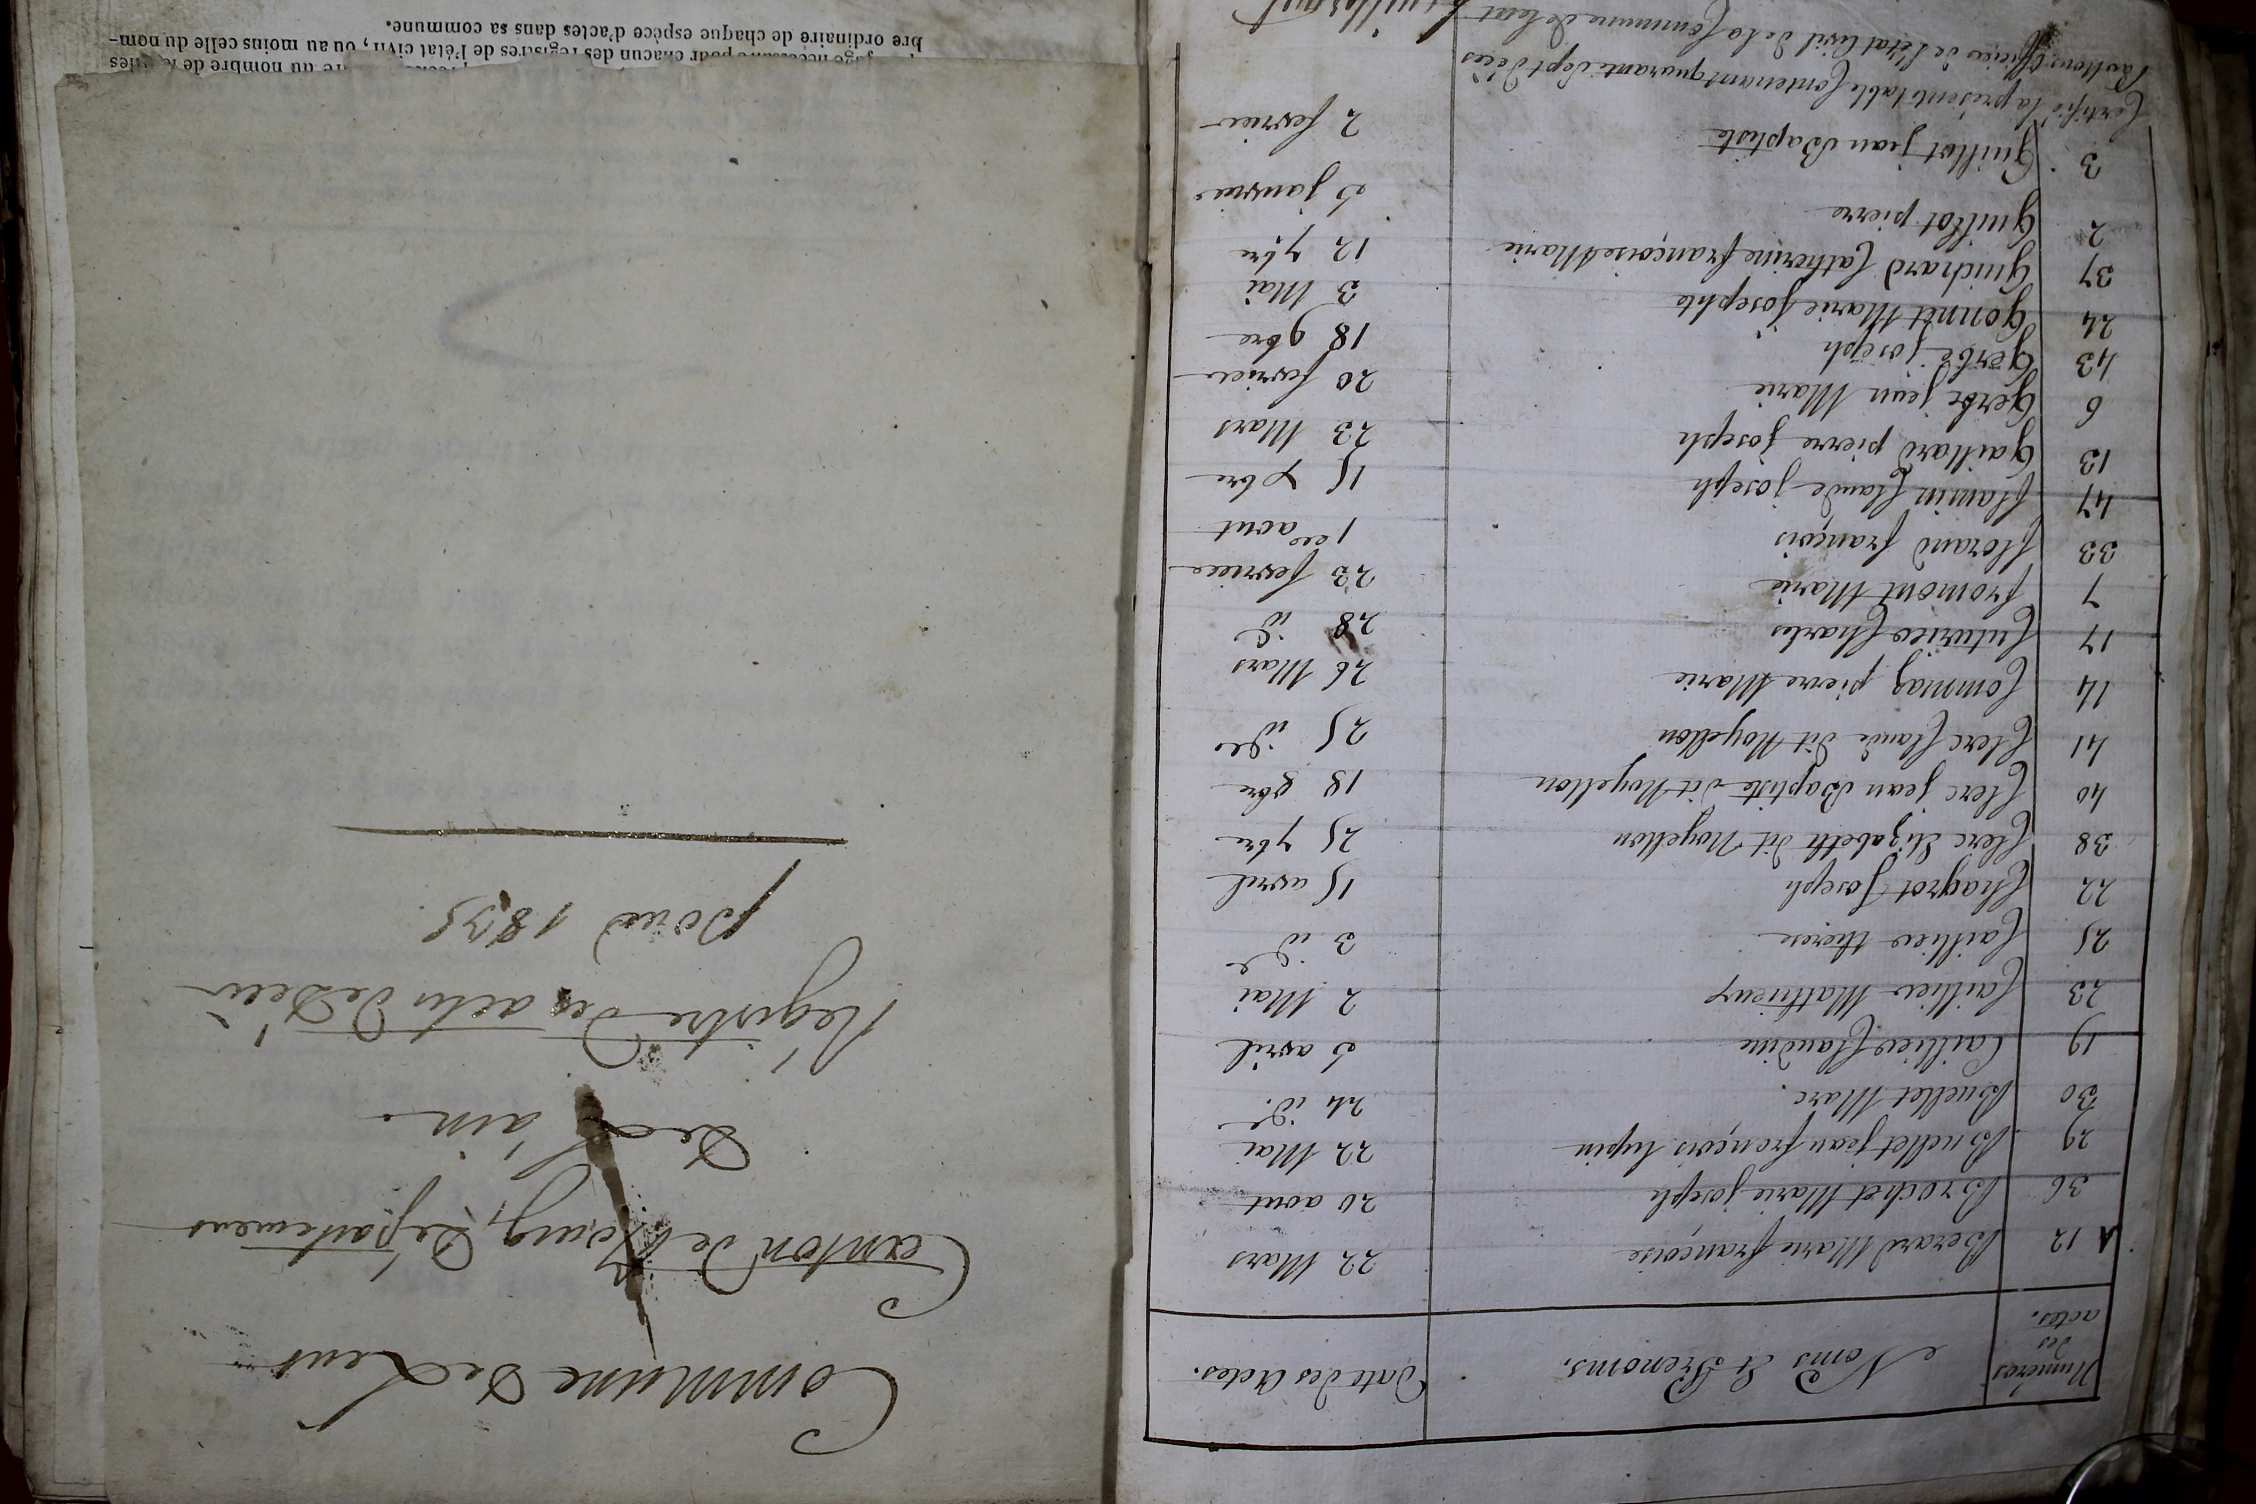 Numéros des actes.
Noms et Prenoms.
Date des Actes.
12 Berard Marie françoise 22 Mars
36 Brochet Marie joseph 20 aout
29 Buellet jean françois lupin 22 Mai
30 Buellet Marc. 24 id.
19 Caillier Claudine 5 avril
23 Caillier Mathieux 2 Mai
25 Caillier therese 3 id
22 Chagrot Joseph 15 avril
38 Clerc Elizabeth dit Noyellon 25 7bre
40 Clerc jean Baptiste dit Noyellon 18 8bre
41 Clerc Claude dit Noyellon 25 id
14 Commaz pierre Marie 26 Mars
17 Cuturier Charles 28 id
7 fromont Marie 23 fevrier
33 florand françois 1er aout
47 flamin Claude joseph 15 Xbre
13 Gaillard pierre joseph 23 Mars
6 Gerbe jean Marie 20 fevrier
43 Gerbe joseph 18 9bre
24 Gonnet Marie josephte 3 Mai
37 Guichard Catherine françoise Marie 12 7bre
2 Guillot pierre 5 janvier
3 Guillot jean Baptiste 2 fevrier
Certifié la présente table Contenant quarante sept décès
officier de l'état Civil de la Commune de Lent
Commune de Lent
Canton de Bourg, Département
de L'ain
Régistre des actes de Décès
pour 1835
du nombre de
pour chacun des registres de l'état civil, ou au moins celle du nom-
bre ordinaire de chaque espèce d'actes dans sa commune.